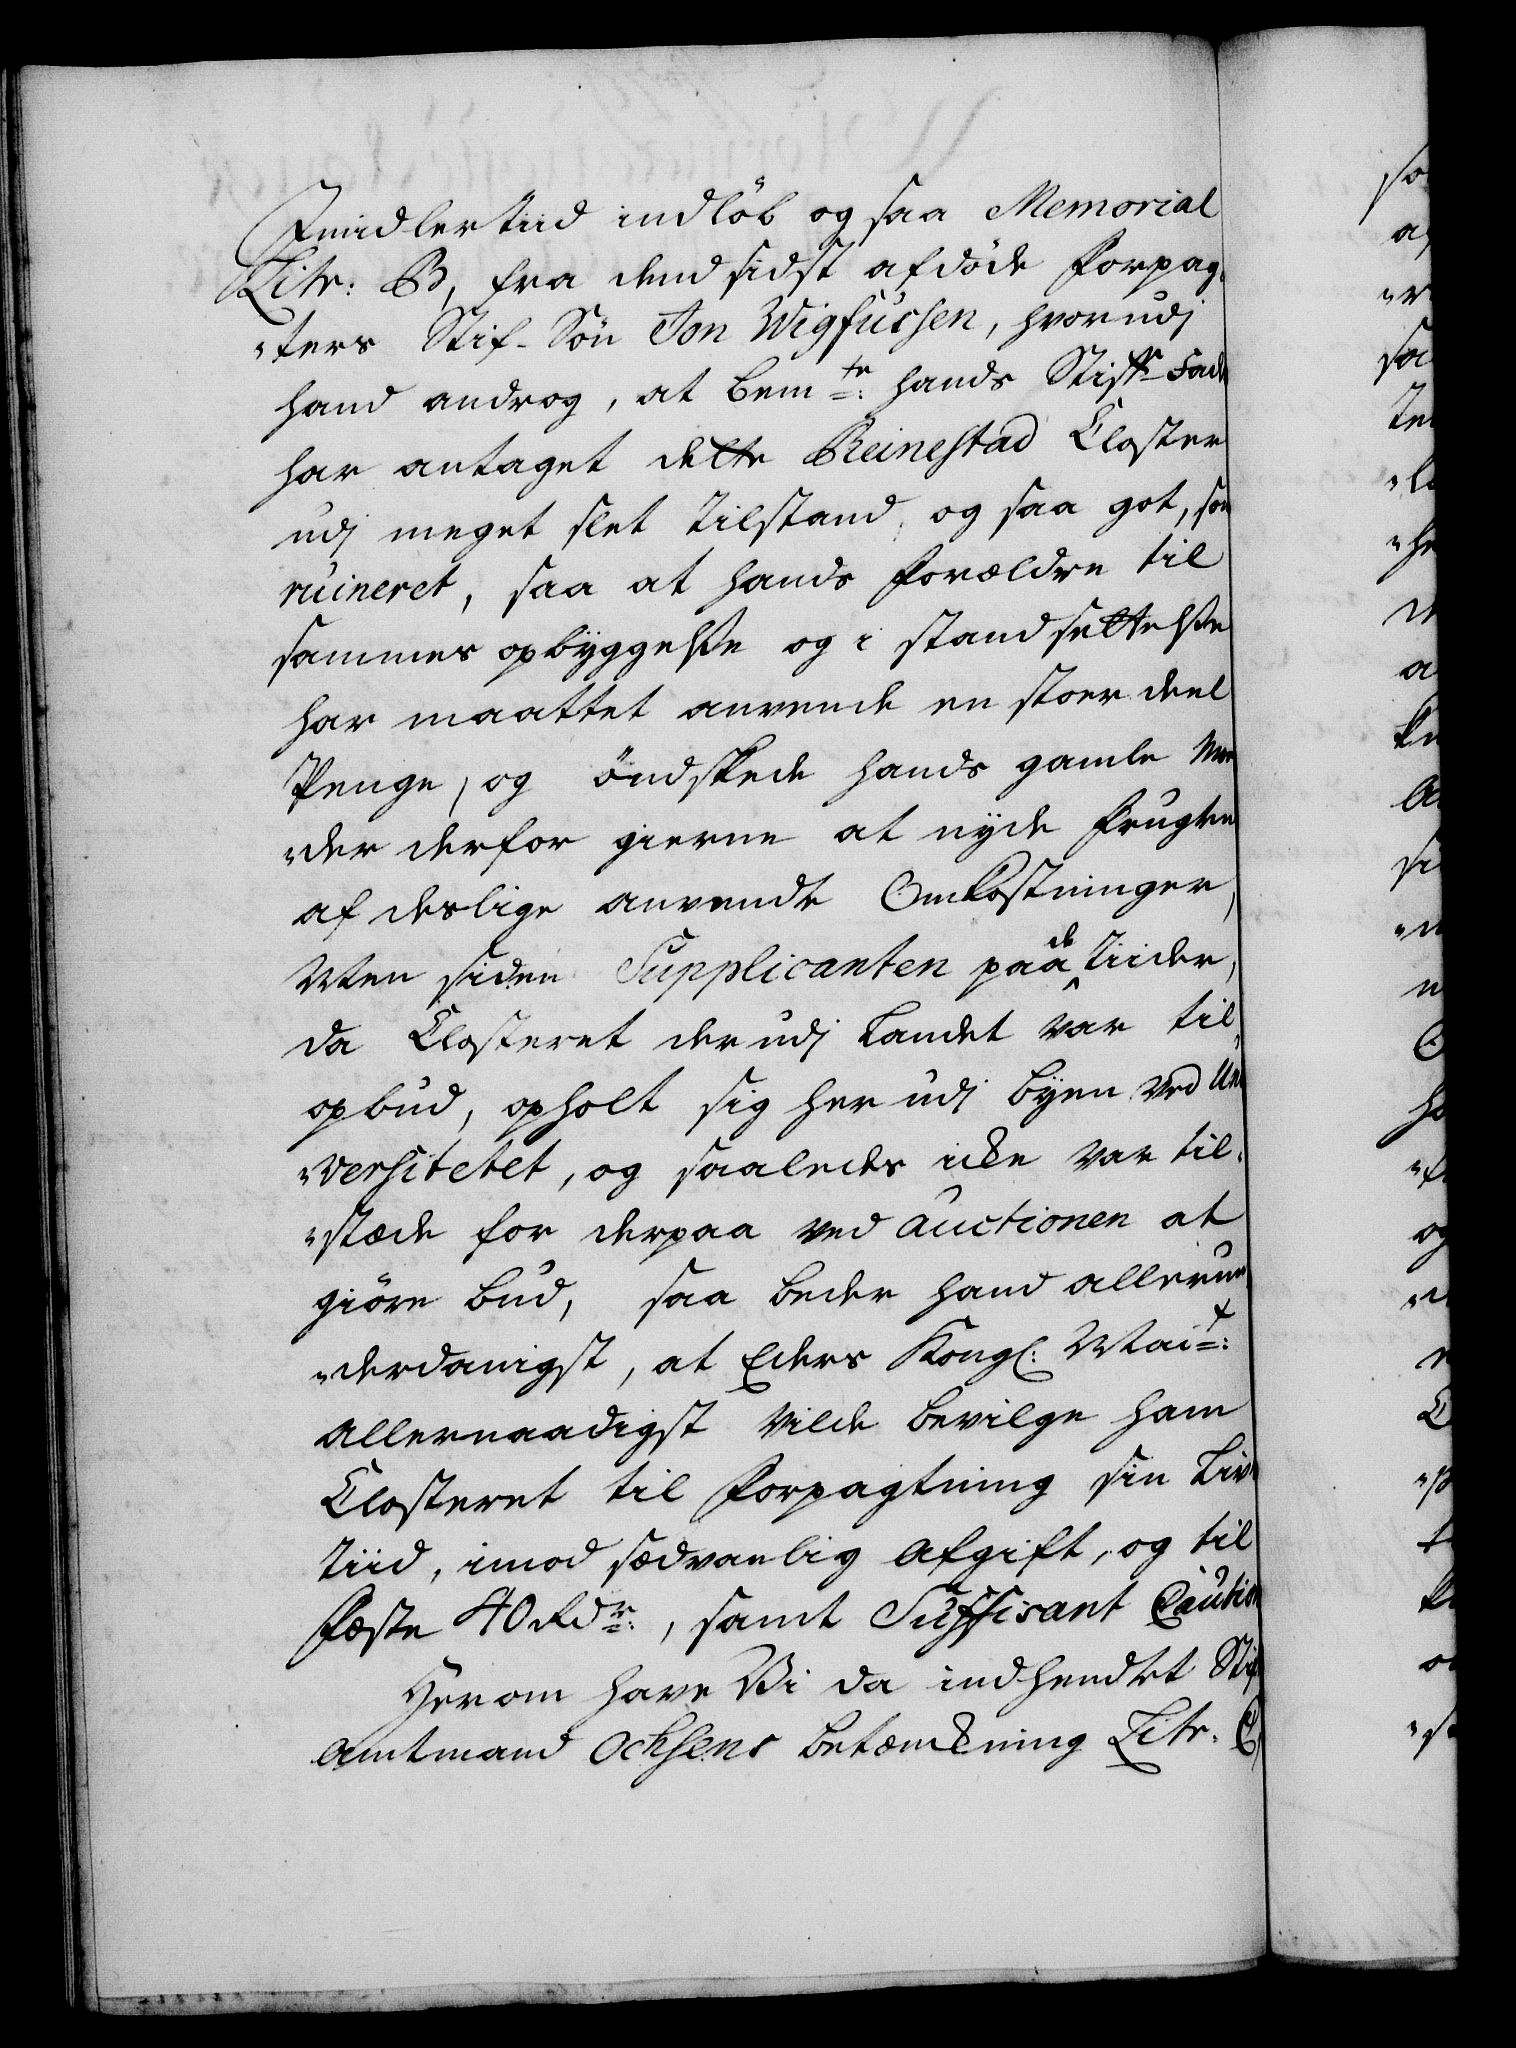 Imidlertiid indlöb og saa Memorial
Litr: B, fra dend sidst afdöde Forpag-
"ters Stif-Sön Jon Wigfussen, hvorudj
hand androg, at bemte: hands Stiff-Fader
har antaget dette Reinestad Closter
udj meget slet tilstand, og saa got, som
ruineret, saa at hands Forældre til
sammes opbÿggelse og i stand settelse
har maattet anvende en stoer deel
Penge, og öndskede hands gamle Mo-
"der derfor gierne at nÿde Frugten
af deslige anvendte Omkostninger,
Men siden Supplicanten paa de Tiider,
da Closteret der udj Landet var til
opbud, opholt sig her udj bÿen ved Uni-
"versitetet, og saaledes icke var til-
"stæde for derpaa ved auctionen at
giöre bud, saa beder hand allerun-
"derdanigst, at Eders Kongl: Mait:
allernaadigst vilde bevilge ham
Closteret til Forpagtning sin Livs
Tiid, imod sædvanlig afgift, og til
Fæste 40 Rdr:, samt Suffisant Caution
Herom have Vi da indhendtet Stif
amtmand Ochsens betænckning Litr. C,